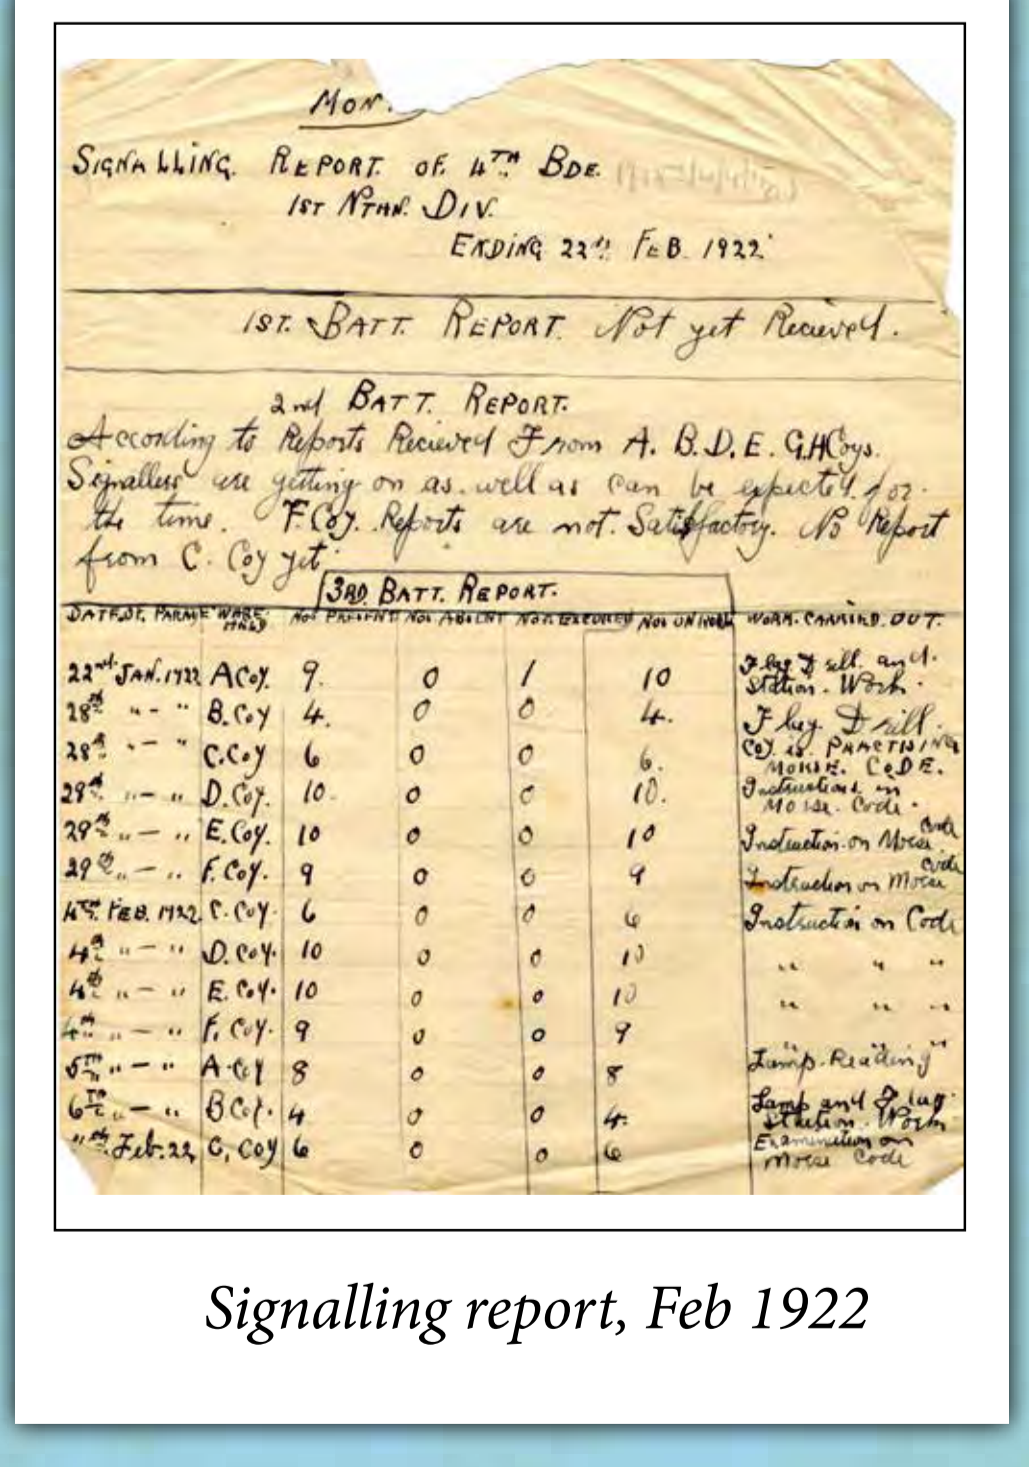 Mon.
SIGNALLING. REPORT. OF. 4TH BDE.
1ST NTHN. DIV.
ENDING 22ND FEB. 1922
1ST. BATT. REPORT. Not yet Recieved.
2nd BATT. REPORT.
According to Reports Recieved From A. B. D. E. G.H Coys.
Signallers are getting on as well as can be expected for
the time. F. Coy. Reports are not Satisfactory. No Report
from C. Coy yet.
3RD BATT. REPORT.
DATE OF. PARADE WHERE HELD NO. PRESENT NO. ABSENT NO. EXCUSED NO. ON ROLL WORK. CARRIED. OUT.
22nd JAN. 1922 A Coy. 9. 0 1 10 Flag Drill. and.
Station. Work.
28th " — " B. Coy 4. 0 0 4. Flag. Drill.
28th " — " C. Coy 6 0 0 6. COY. IS PRACTISING
MORSE. CODE.
29th " — " D. Coy. 10. 0 0 10. Instructions in
Morse. Code.
29th " — " E. Coy. 10 0 0 10 Instruction on Morse Code
29th " — " F. Coy. 9 0 0 9 Instruction on Morse Code
4TH FEB. 1922 C. Coy. 6 0 0 6 Instruction on Code
4th " — " D. Coy. 10 0 0 10 " " "
4th " — " E. Coy. 10 0 0 10 " " "
4th " — " F. Coy. 9 0 0 9 " "
5TH " — " A. Coy 8 0 0 8 Lamp. Reading
6TH " — " B Coy. 4 0 0 4. Lamp and Flag.
Station. Work
Feb. 22 C, Coy 6 0 0 6 Examination on
Morse Code
Signalling report, Feb 1922